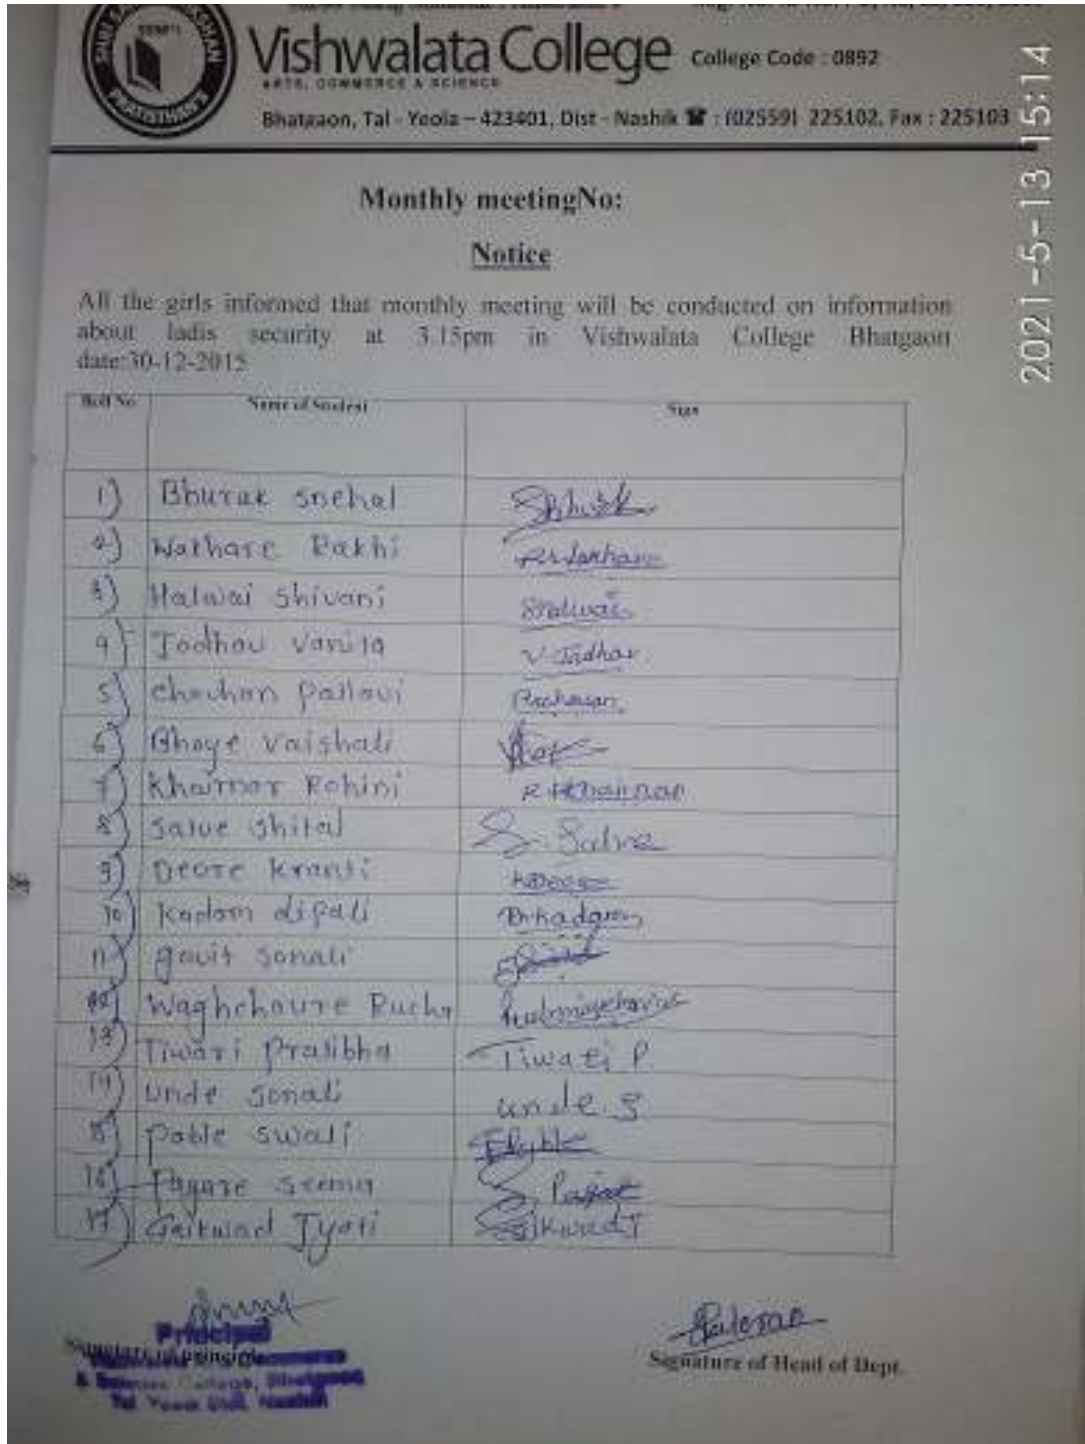 Vishwalata College College Code : 0892
ARTS, COMMERCE & SCIENCE
Bhatgaon, Tal - Yeola – 423401, Dist - Nashik ☎ : (02559) 225102, Fax : 225103
2021-5-13 15:14
Monthly meetingNo:
Notice
All the girls informed that monthly meeting will be conducted on information
about ladis security at 3.15pm in Vishwalata College Bhatgaon
date:30-12-2015
Roll No Name of Student Sign
1) Bhurak snehal
2) Wakhare Rakhi
3) Halwai shivani
4) Jadhav Vanita V. Jadhav.
5) chavhan pallavi
6) Bhoye vaishali
7) Khairnar Rohini R Khairnar
8) salve shital S. Salve
9) Deore kranti
10) kadam dipali
11) gavit sonali
12) Waghchoure Rucha
13) Tiwari pratibha Tiwari P.
14) unde sonali unde S
15) pable swati
16) Pagare seema S. Pagare
17) Gaikwad Jyoti Gaikwad J
Principal
Signature of Principal
& Science College, Bhatgaon
Tal Yeola Dist. Nashik
Signature of Head of Dept.